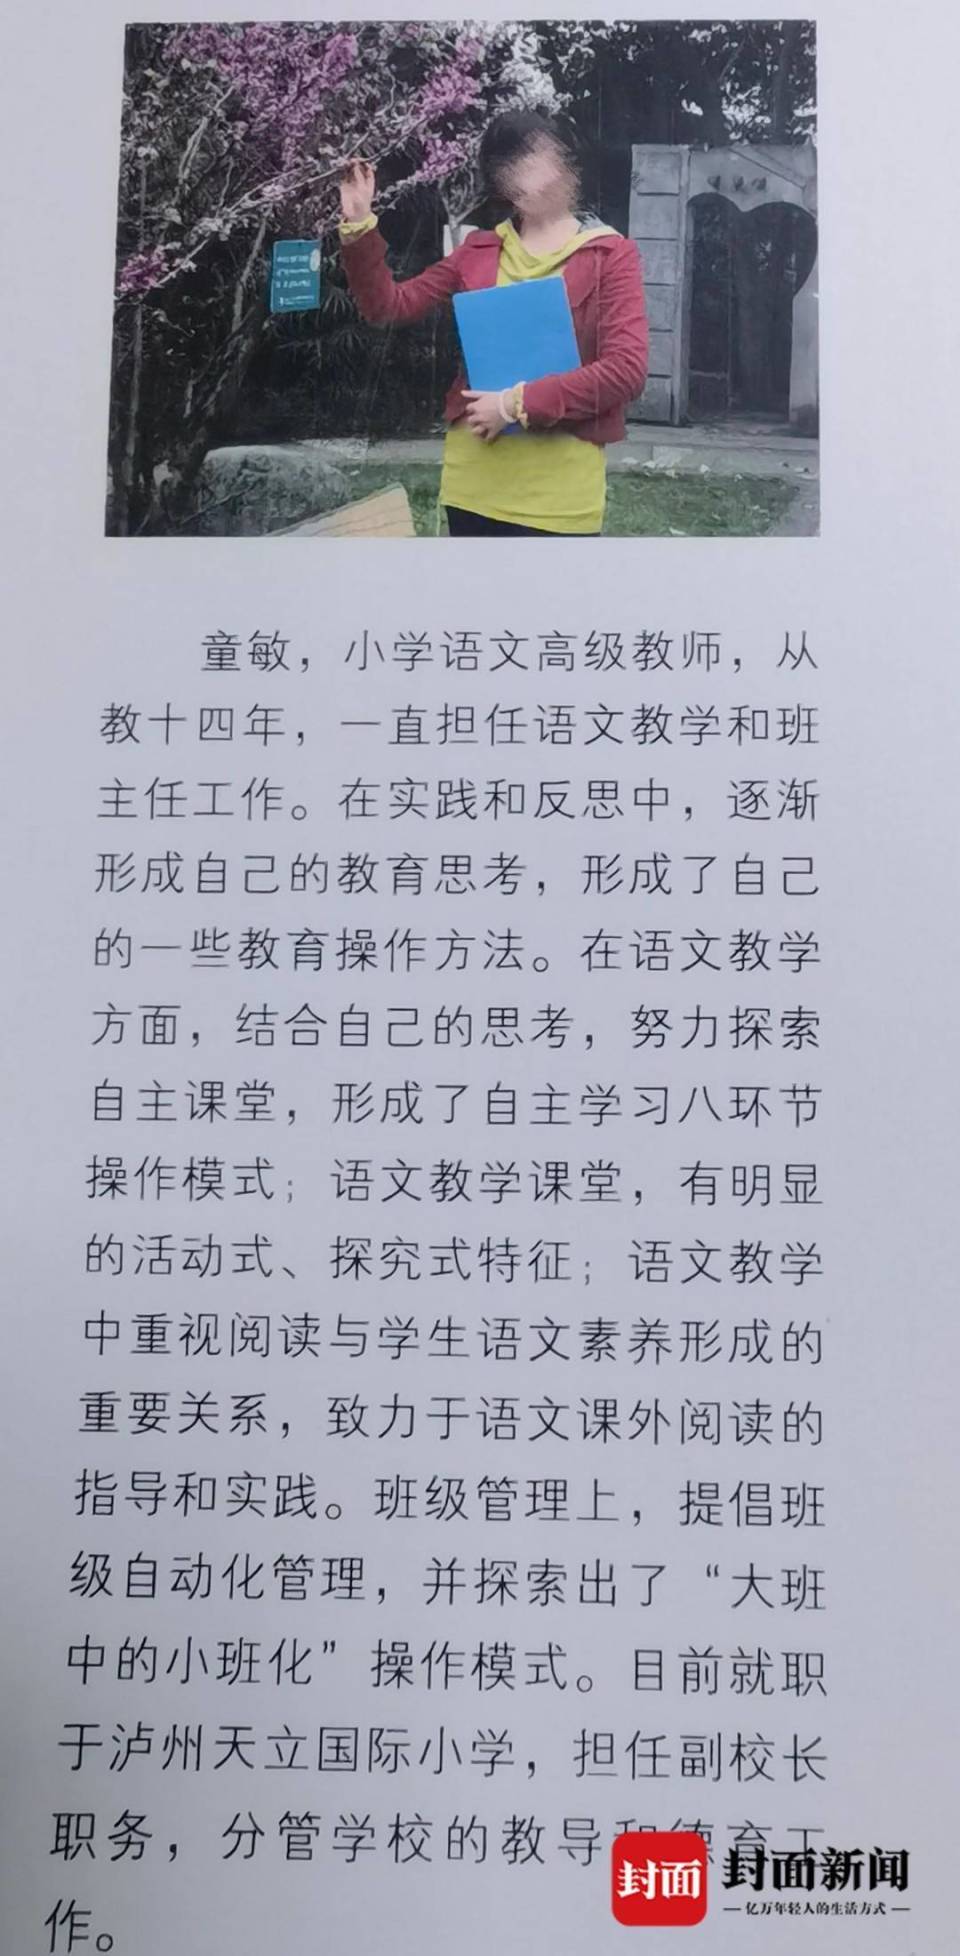 童敏，小学语文高级教师，从
教十四年，一直担任语文教学和班
主任工作。在实践和反思中，逐渐
形成自己的教育思考，形成了自己
的一些教育操作方法。在语文教学
方面，结合自己的思考，努力探索
自主课堂，形成了自主学习八环节
操作模式；语文教学课堂，有明显
的活动式、探究式特征；语文教学
中重视阅读与学生语文素养形成的
重要关系，致力于语文课外阅读的
指导和实践。班级管理上，提倡班
级自动化管理，并探索出了“大班
中的小班化”操作模式。目前就职
于泸州天立国际小学，担任副校长
职务，分管学校的教导和德育工
作。
封面
封面新闻
亿万年轻人的生活方式